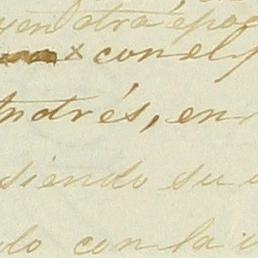 en otra époc
x con el
Andrés, en
siendo su
lo con la